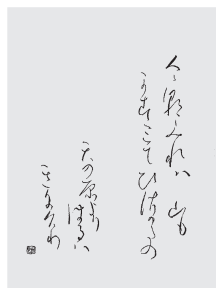 けさみれハ 山も
かすみてひさかたの
天の原より
はるハ
きにけり